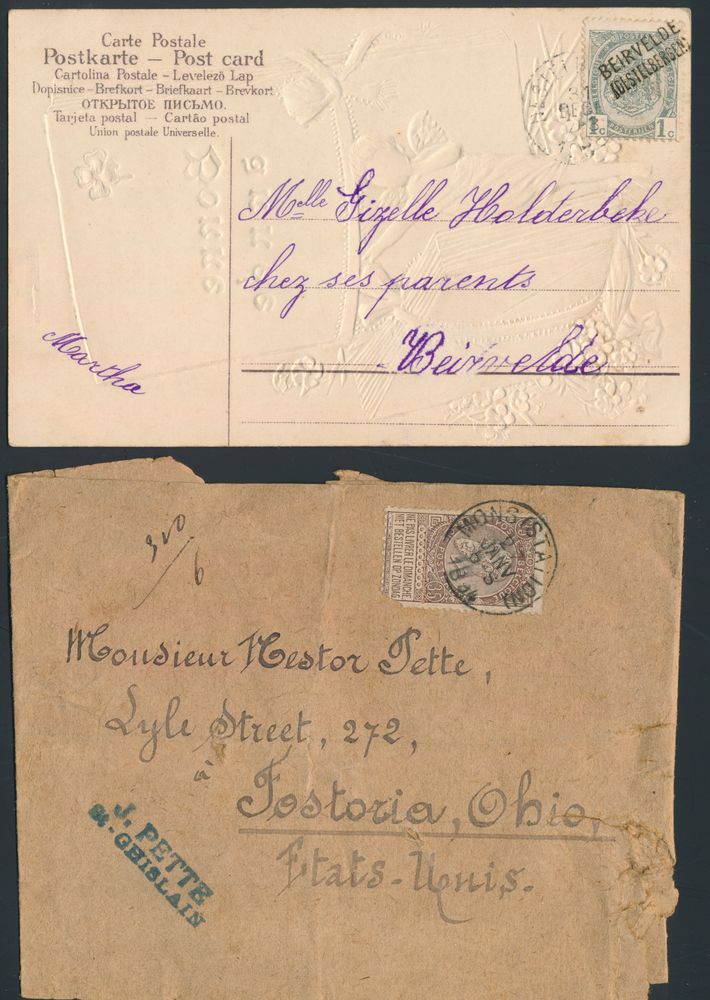 Carte Postale
Postkarte – Post card
Cartolina Postale – Levelező Lap
Dopisnice – Brefkort – Briefkaart – Brevkort
ОТКРЫТОЕ ПИСЬМО.
Tarjeta postal – Cartão postal
Union postale Universelle.
BEIRVELDE
(DESTELBERGEN)
1c 1c
DEC
Bonne
année
Melle Gizelle Holderbeke
chez ses parents
Beirvelde
Martha
320
6
NE PAS LIVRER LE DIMANCHE
NIET BESTELLEN OP ZONDAG
35
MONS (STATION)
JANV
Monsieur Nestor Pette,
Lyle Street, 272,
à
Fostoria, Ohio,
Etats-Unis.
J. PETTE
St-GHISLAIN